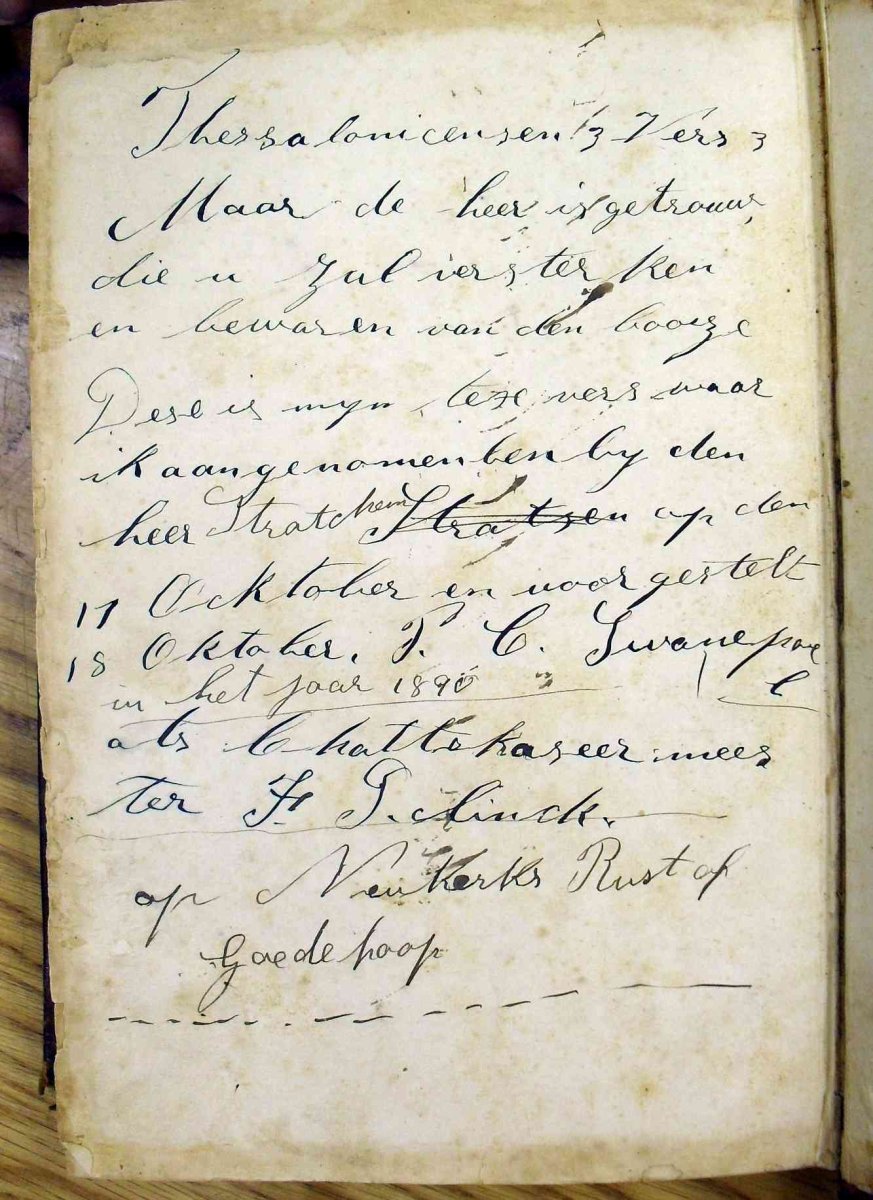 Thessalonicensen 3 Vers 3
Maar de heer is getrouw,
die u zul versterken
en bewaren van den booze
Dese is myn teze vers waar
ik aangenomen ben by den
heer Stratchem Stratsen op den
17 Ocktober en voorgestelt
18 Oktober. P. C. Swanepoel
in het jaar 1890
als Chattekaseer mees
ter F. P. clinck.
op Nieukerks Rust of
Goede hoop